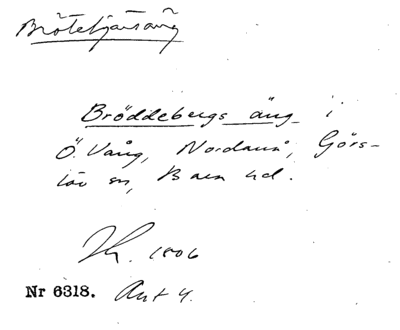 Brötetjärsäng
Bröddebergs äng i
Ö. Vång, Nordanå, Görs-
löv sn, Bara hd.
1806
Nr 6318. Akt 4.